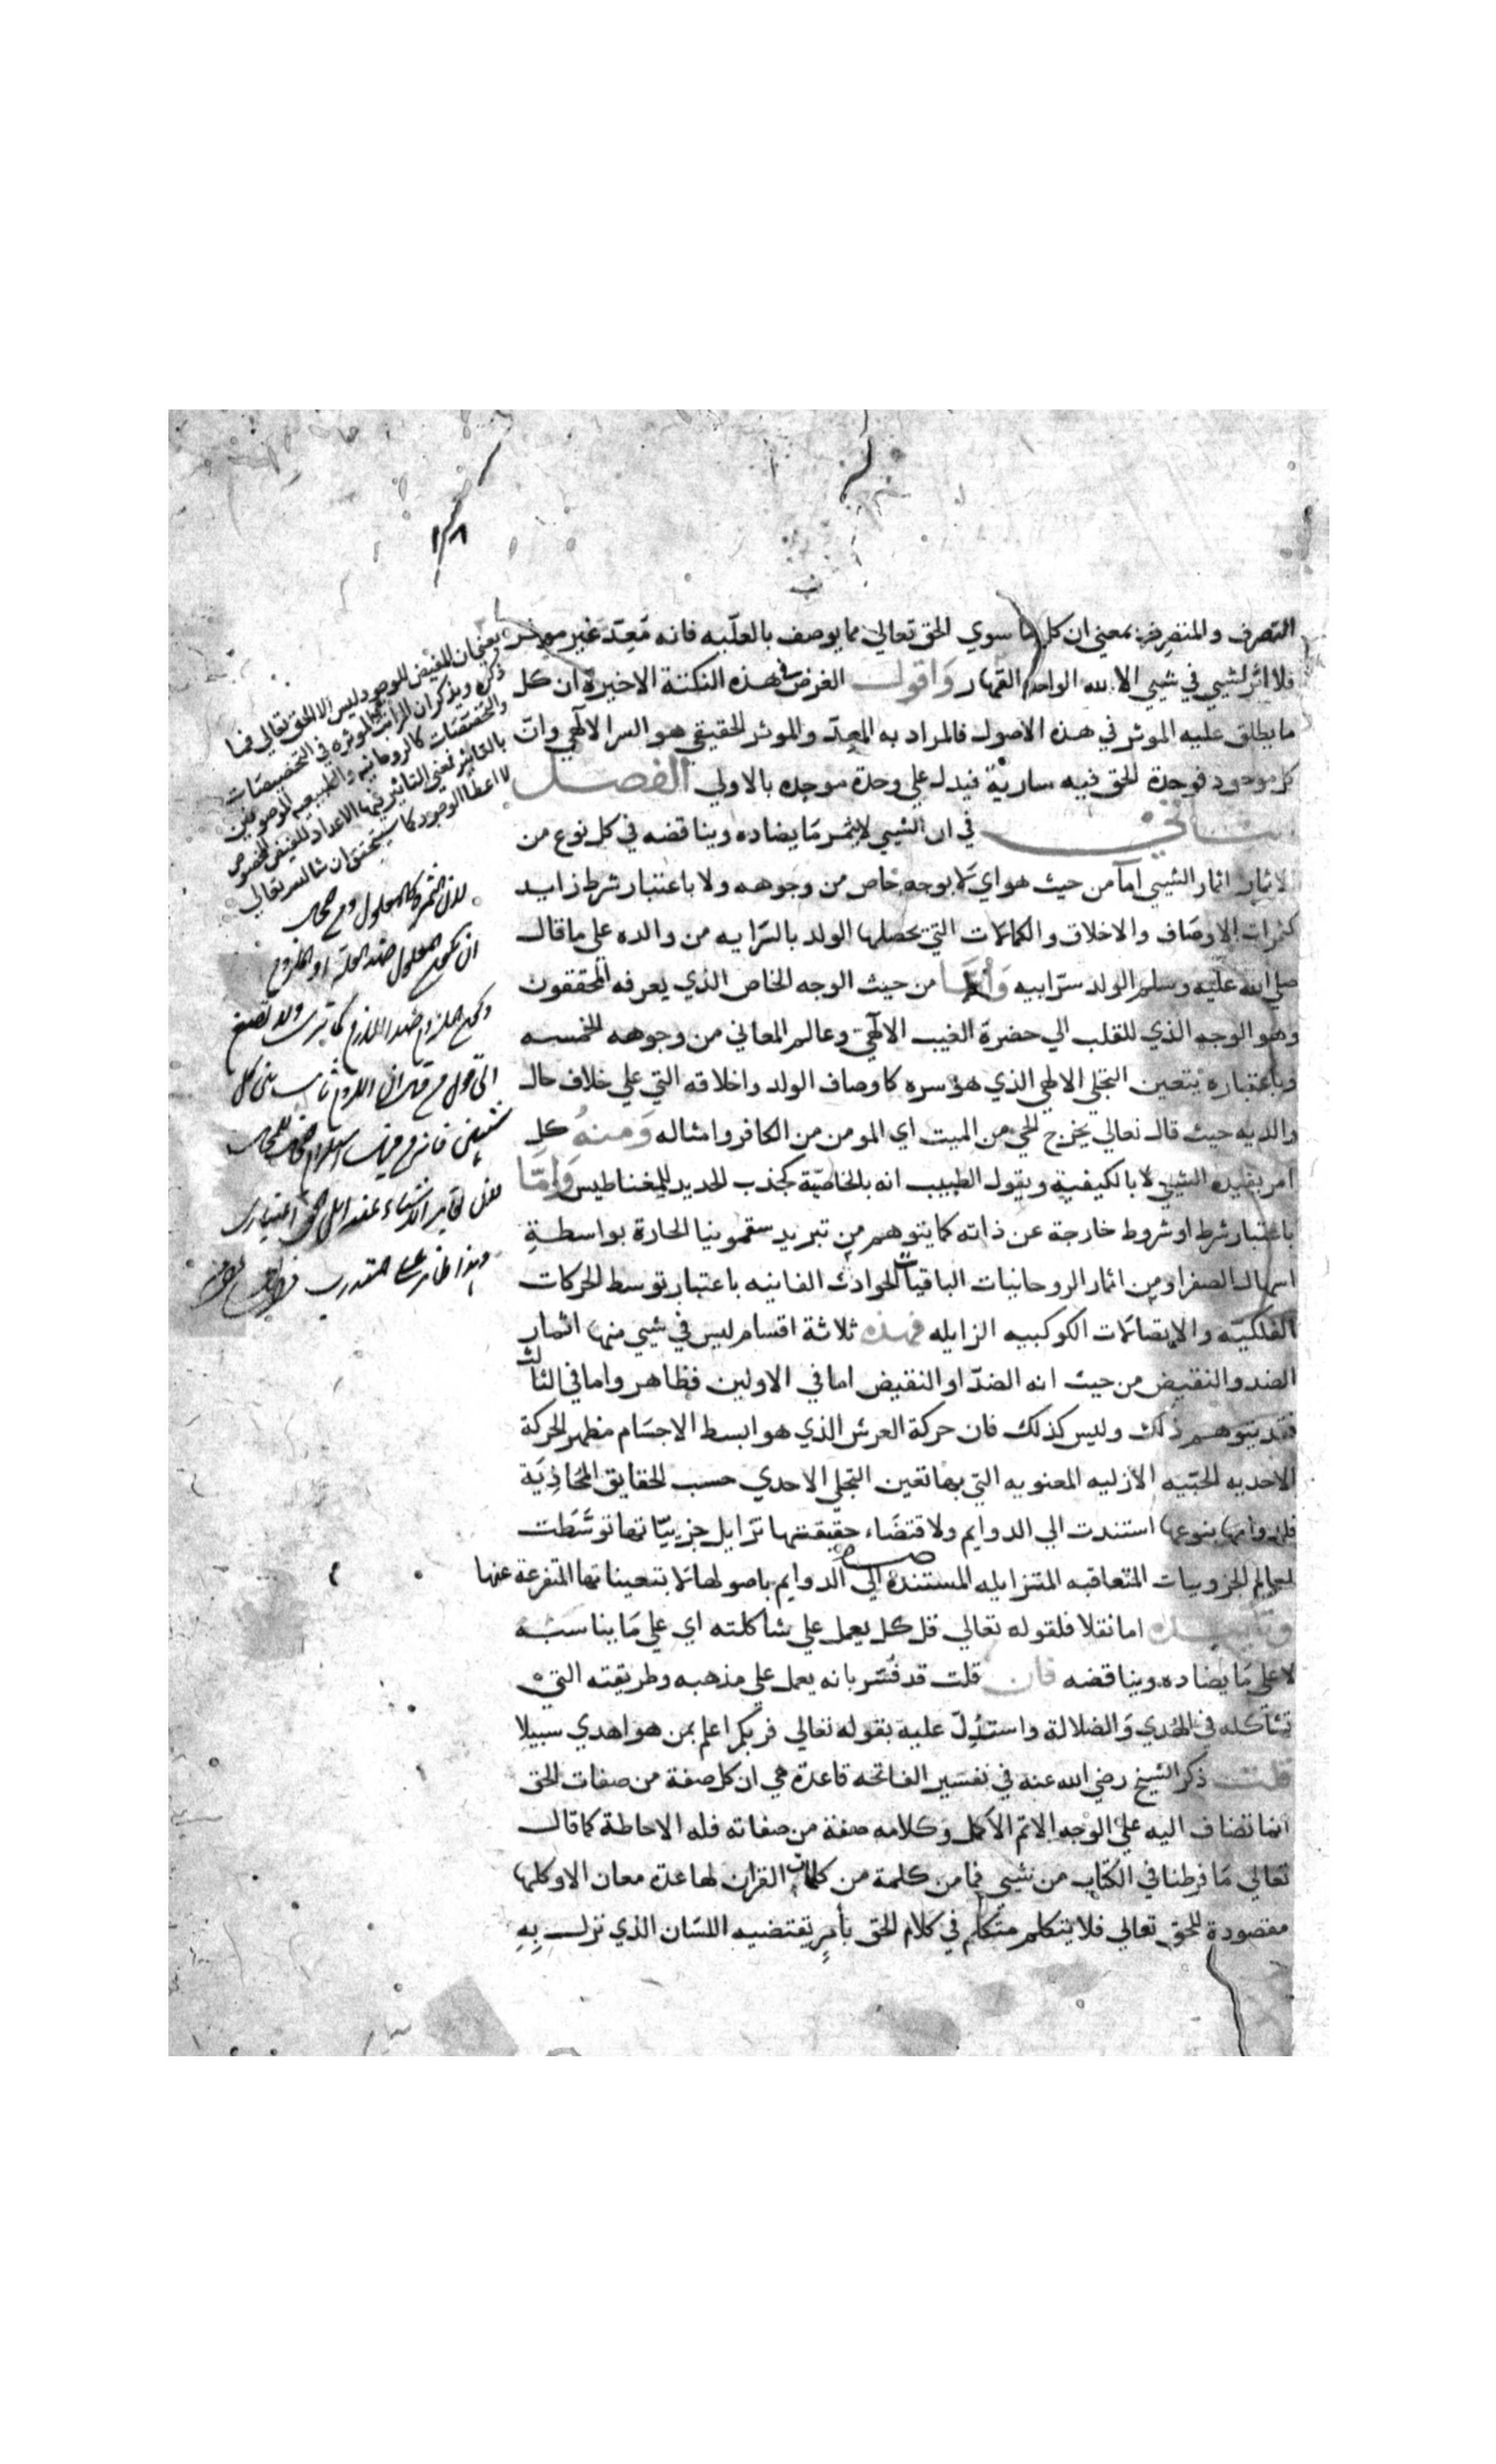 التصرف والمتصرف بمعني ان كل ما سوي الحق تعالي مما يوصف بالعلّيه فانه مُعِدّ غير موثر
فلا اثر لشيي في شيي الا لله الواحد القهار وَاقول الغرض في هذه النكتة الاخيرة ان كل
ما يطلق عليه الموثر في هذه الاصول فالمراد به المعِدّ والموثر الحقيقي هو السر الالهي وانّ
كل موجود فوحدة الحق فيه سارية فيدل علي وحدة موجده بالاولي الفصل
في ان الشيي لا يثمر مَا يضاده ويناقضه في كل نوع من
الاثمار اثمار الشيي اما من حيث هو اي لا بوجه خاص من وجوهه ولا باعتبار شرط زايد
كثمرات الاوصَاف والاخلاق والكمالات التي يحصلها الولد بالسّرايه من والده علي ما قال
صلي الله عليه وسلم الولد سرّ ابيه وَامّا من حيث الوجه الخاص الذي يعرفه المحققون
وهو الوجه الذي للقلب الي حضرة الغيب الالهي وعالم المعاني من وجوهه الخمسه
وباعتباره يتعين التجلي الالهي الذي هو سره كاوصاف الولد واخلاقه التي علي خلاف حال
والديه حيث قال تعالي يخرج الحي من الميت اي المومن من الكافر وامثاله وَمنهُ كل
امر يفيده الشيي لا بالكيفية ويقول الطبيب انه بالخاصّية كجذب الحديد للمغناطيس وَامّا
باعتبار شرط او شروط خارجة عن ذاته كما يتوهم من تبريد سقمونيا الحارة بواسطةِ
اسهال الصفرا ومن اثمار الروحانيات الباقيات الحوادث الفانيه باعتبار توسط الحركات
الفلكيّه والاتصالات الكوكبيه الزايله فهذه ثلاثة اقسام ليس في شيي منها اثمار
الضد والنقيض من حيث انه الضدّ او النقيض اما في الاولين فظاهر واما في الثالث
فقد يتوهم ذلك وليس كذلك فان حركة العرش الذي هو ابسط الاجسَام مظهر الحركة
الاحديه الحبّيه الازليه المعنويه التي بها تعين التجلي الاحدي حسب الحقايق المحَاذِيَة
فلدوامها بنوعها استندت الي الدوايم ولاقتضَاء حقيقتها تَزايل جزييّاتها توسَّطت
لعالم الجزوييات المتعاقبه المتزايله المستنده الي الدوايم باصولها لا بتعيناتها المتفرعة عنها
اما نقلا فلقوله تعالي قل كل يعمل علي شاكلته اي علي مَا يناسبه
لا علي مَا يضاده ويناقضه فان قلت قد فُسّر بانه يعمل علي مذهبه وطريقته التي
تشاكله في الهُدي وَالضلالة واستُدِلّ عليه بقوله تعالي فربكم اعلم بمن هو اهدي سبيلا
قلت ذكر الشيخ رضي الله عنه في تفسير الفاتحه قاعدة هي ان كل صفة من صفات الحق
انما تضاف اليه علي الوجه الاتم الاكمل وكلامه صفة من صفاته فله الاحاطة كما قال
تعالي مَا فرطنا في الكتاب من شيي فما من كلمة من كلمات القران لها عدة معان الا وكلها
مقصودة للحق تعالي فلا يتكلم متكلم في كلام الحق بأمرٍ تقتضيه اللسَان الذي نزل بِهِ
يعني ان المفيض للوجود ليس الا الحق تعالي فيما
ذكره ويذكر ان المراتب الموثره في التخصيصات
والتخصّصات كالروحانيه والطبيعيه الموصوفين
بالتاثير فمعني التاثير فيها الاعداد للفيض المخصوص
لا اعطا الوجود كما سيتحقق ان شا الله تعالي